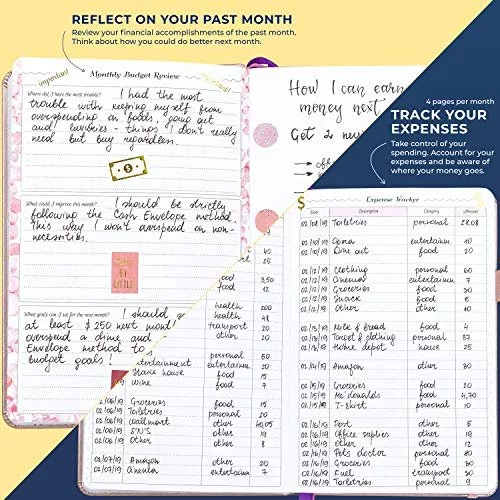 REFLECT ON YOUR PAST MONTH
Review your financial accomplishments of the past month.
Think about how you could do better next month.
important!
Monthly Budget Review
important!
Where did I have the most trouble?
I had the most
trouble with keeping myself from
overspending on foods, going out
and luxuries - things I don't really
need but buy regardless.
What should I improve this month?
I should be strictly
following the Cash Envelope method.
This way I won't overspend on non-
necessities.
BY
LITTLE
What goals can I set for next month?
I should
at least $250 next mon
overspend a dime and
Envelope method to
budget goals!
How I can earn
money next
Get a
4 pages per month
TRACK YOUR
EXPENSES
Take control of your
spending. Account for your
expenses and be aware of
where your money goes.
$
Expense Tracker
Date Description Category Amount
02/08/19 Toiletries personal 28.08
02/10/19 Opera entertainm. 10
02/10/19 Dine out food 20
02/12/19 Clothing personal 60
02/12/19 Cinema entertainm. 7
02/12/19 Groceries food 30
02/12/19 Snack food 5
02/12/19 Other other 20
02/13/19 Milk & Bread food 4
02/13/19 clothing personal 37
02/13/19 Home depot house 25
02/14/19 Amazon other 30
02/15/19 Groceries food 20
02/15/19 Mc'donalds food 4,70
02/15/19 T-shirt personal 10
02/16/19 Post other 5
02/16/19 Office supplies other 19
02/16/19 Other other 12
02/16/19 Pets doctor personal 80
02/16/19 Groceries food 30
02/16/19 Fuel transport 30
02/16/19 Toiletries personal 9
40
25
food 3,50
food 12
health 200
health 48
transport 20
other 10
personal 50
entertainment entertainm. 20
Stake house food 15
Wine food 7
02/06/19 Groceries food 15
02/06/19 Toiletries personal 20
02/06/19 Wallmart other 40,05
02/06/19 other 19
02/06/19 Other other 8
02/07/19 Amazon other 20
02/07/19 Cinema entertainm. 7